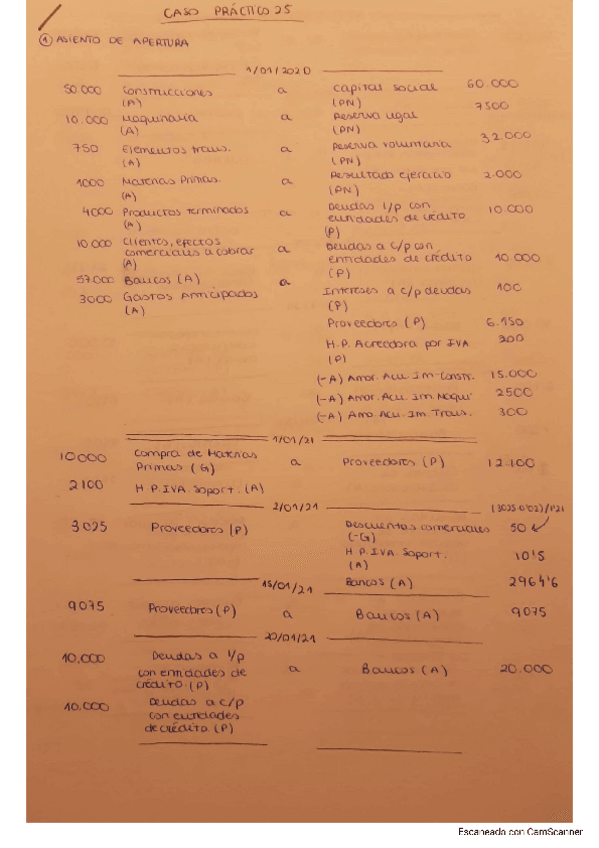 CASO PRÁCTICO 25
① ASIENTO DE APERTURA
1/01/2020
50.000 Construcciones (A) a Capital social (PN) 60.000
10.000 Maquinaria (A) a Reserva legal (PN) 7500
750 Elementos trans. (A) a Reserva voluntaria (PN) 32.000
1000 Materias Primas. (A) a Resultado ejercicio (PN) 2.000
4000 Productos terminados (A) a Deudas l/p con entidades de crédito (P) 10.000
10.000 Clientes, efectos comerciales a cobrar (A) a Deudas a c/p con entidades de crédito (P) 10.000
57.000 Bancos (A) a Intereses a c/p deudas (P) 100
3000 Gastos Anticipados (A)
Proveedores (P) 6.150
H.P. Acreedora por IVA (P) 200
(-A) Amor. Acu. Im. Constr. 15.000
(-A) Amor. Acu. Im. Maqui 2500
(-A) Amo. Acu. Im. Trans. 300
1/01/21
10000 Compra de Materias Primas (G) a Proveedores (P) 12.100
2100 H.P. IVA. Soport. (A)
2/01/21 (3025·0'02)/1'21
3025 Proveedores (P) Descuentos comerciales (-G) 50
H.P. IVA. Soport. (A) 10'5
Bancos (A) 2964'6
15/01/21
9075 Proveedores (P) a Bancos (A) 9075
20/01/21
10.000 Deudas a l/p con entidades de crédito (P) a Bancos (A) 20.000
10.000 Deudas a c/p con entidades de crédito (P)
Escaneado con CamScanner